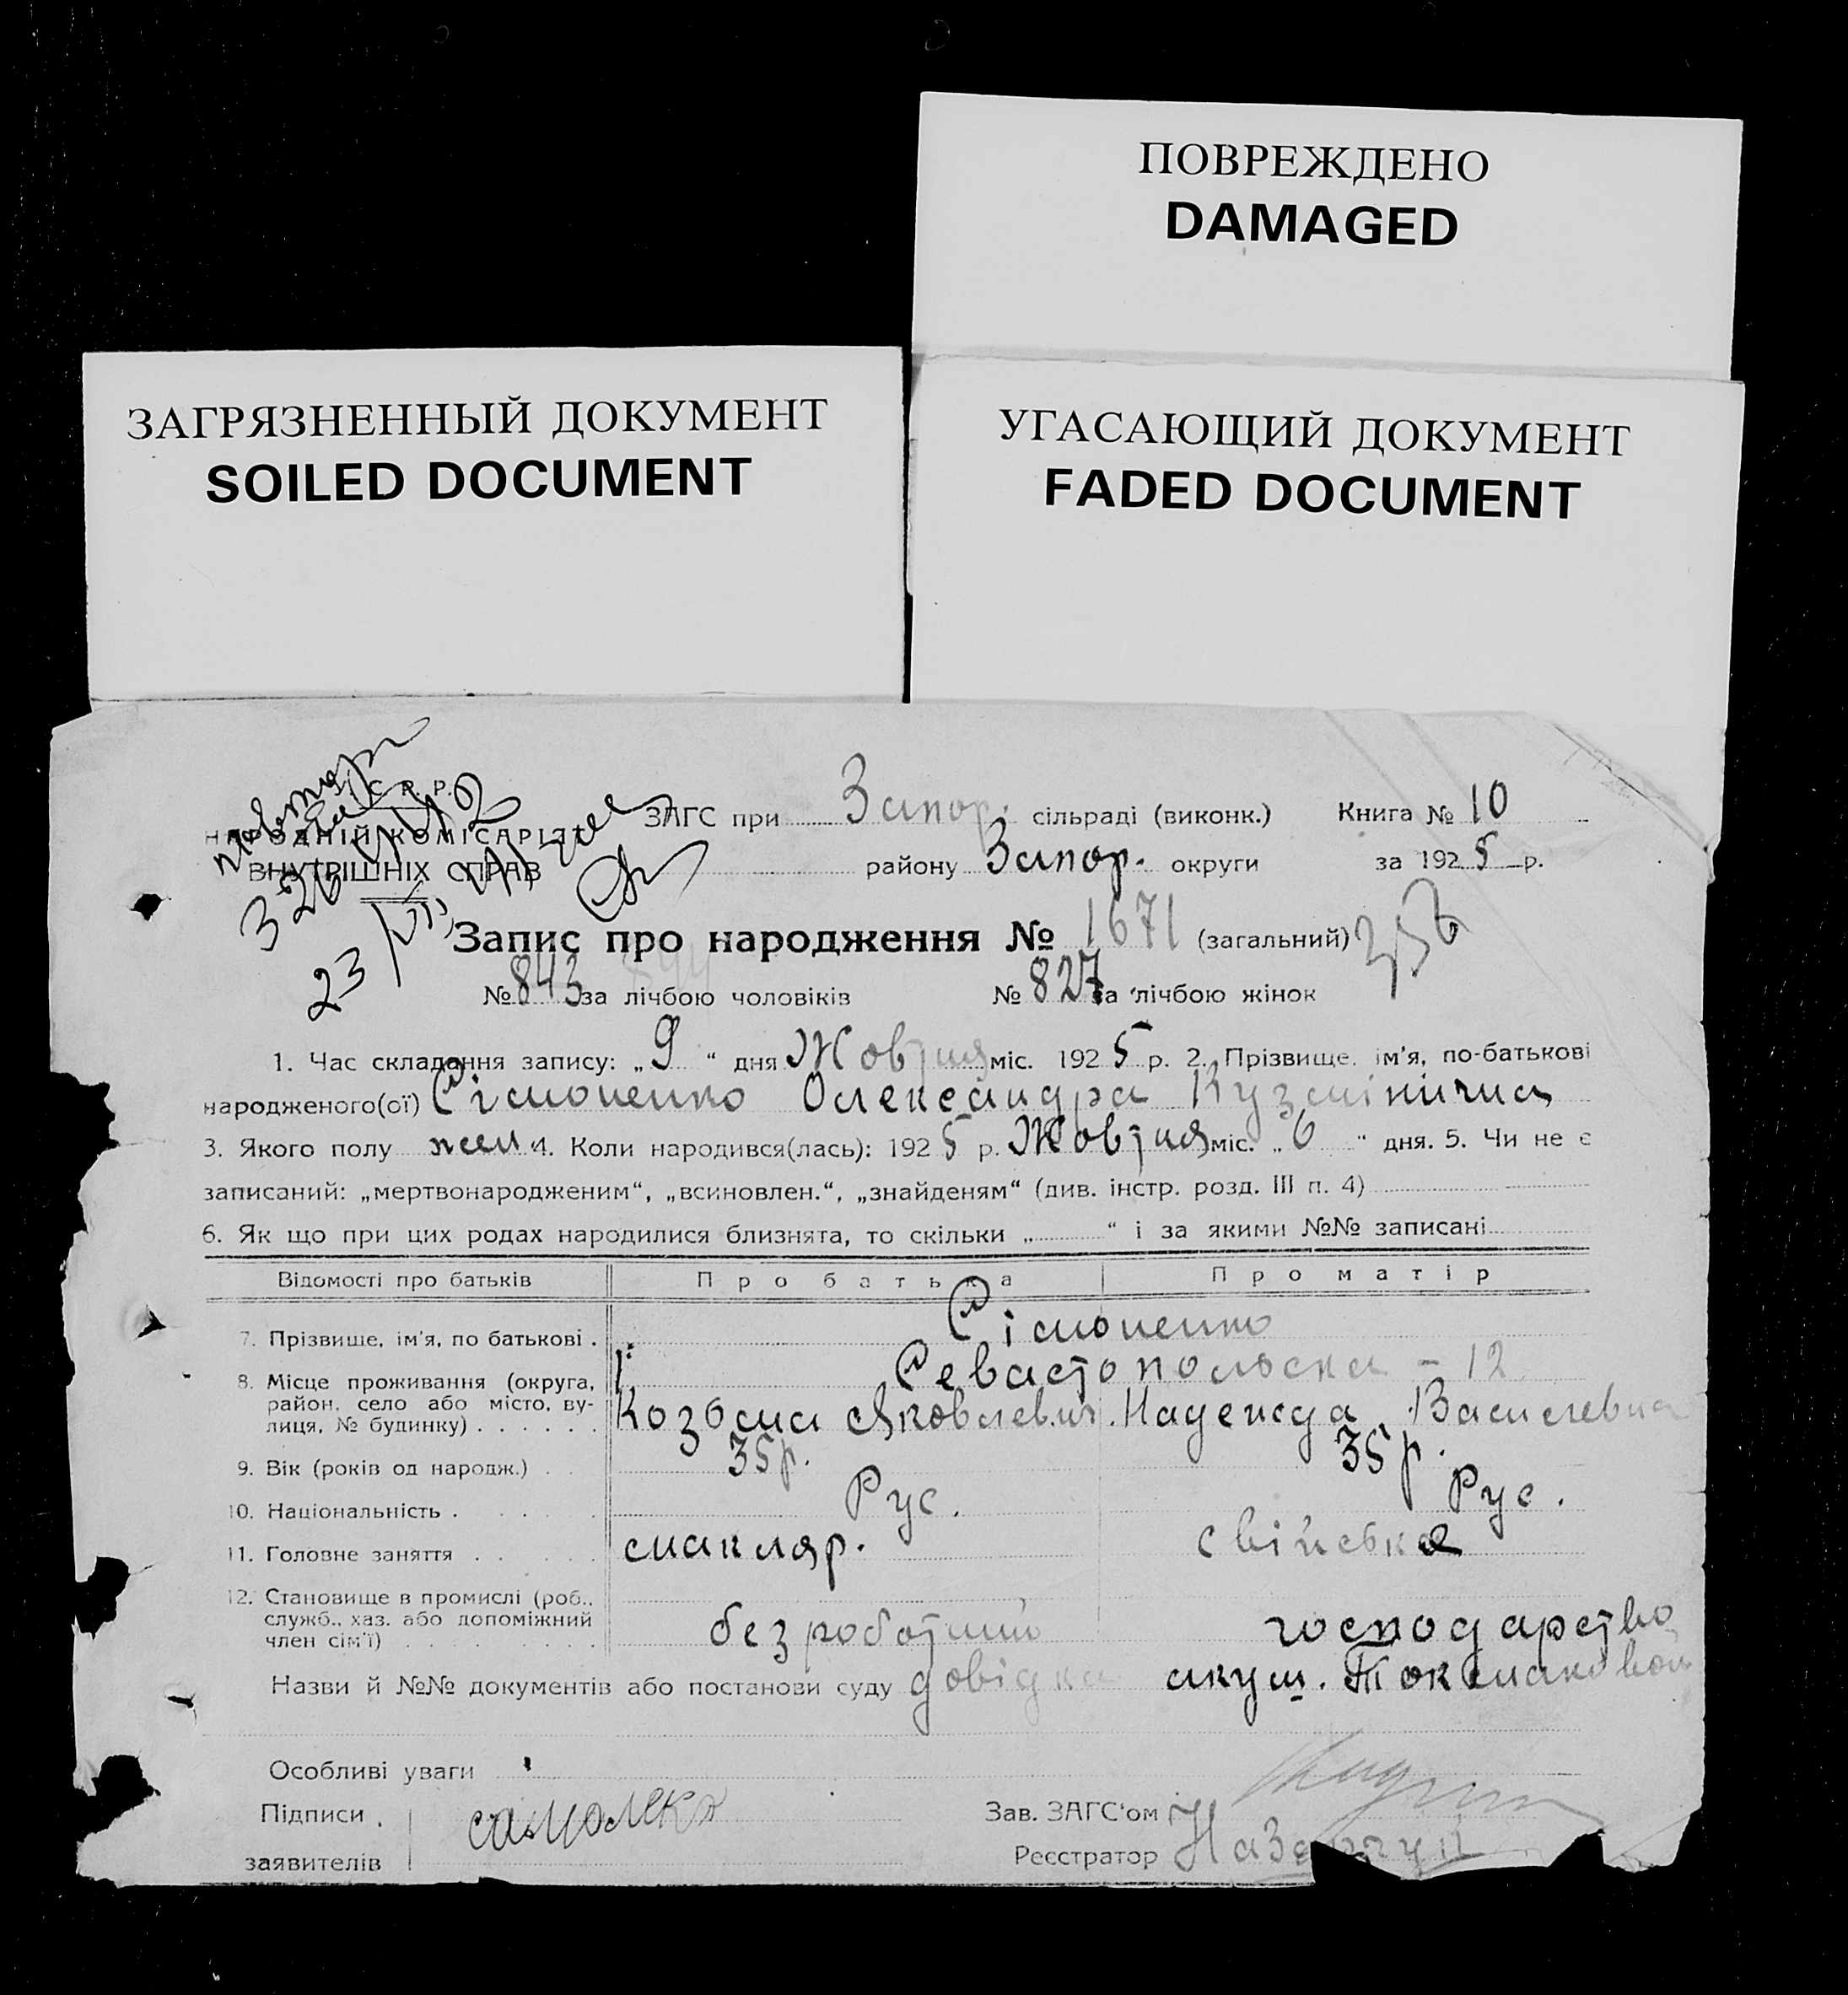 ПОВРЕЖДЕНО
DAMAGED
ЗАГРЯЗНЕННЫЙ ДОКУМЕНТ
SOILED DOCUMENT
УГАСАЮЩИЙ ДОКУМЕНТ
FADED DOCUMENT
С. Р. Р.
НАРОДНІЙ КОМІСАРІЯТ
ВНУТРІШНІХ СПРАВ
23
ЗАГС при Запор. сільраді (виконк.) Книга № 10
району Запор. округи за 1925 р.
Запис про народження № 1671 (загальний) 356
№ 843 за лічбою чоловіків № 827 за лічбою жінок
1. Час складання запису: „9“ дня Жовтня міс. 1925 р. 2. Прізвище, ім'я, по-батькові
народженого(ої) Сімоненко Олександра Кузмінична
3. Якого полу жен 4. Коли народився(лась): 1925 р. Жовтня міс. „6“ дня. 5. Чи не є
записаний: „мертвонародженим“, „всиновлен.“, „знайденям“ (див. інстр. розд. III п. 4)
6. Як що при цих родах народилися близнята, то скільки „ “ і за якими №№ записані
Відомості про батьків Про батька Про матір
7. Прізвище, ім'я, по батькові . Сімоненко
8. Місце проживання (округа, Севастопольска - 12
район, село або місто, ву-
лиця, № будинку) . . . . . . Козьма Яковлевич. Надежда Василевна
9. Вік (років од народж.) . . 35 р. 35 р.
10. Національність . . . . . Рус. Рус.
11. Головне заняття . . . . . макляр. свійське
12. Становище в промислі (роб.,
служб., хаз. або допоміжний безроботний господарство
член сім'ї) . . . . . . . . .
Назви й №№ документів або постанови суду довідка акуш. Токмаковой
Особливі уваги
Підписи
заявителів
Зав. ЗАГС'ом
Реєстратор